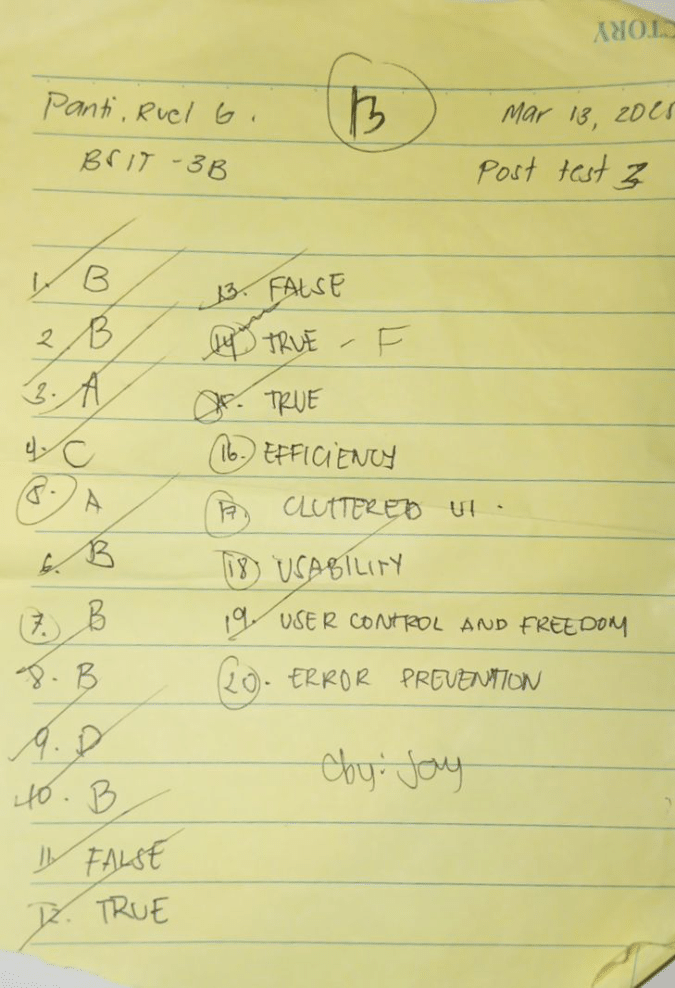 CTORY
Panti, Ruel G.
13
Mar 13, 2025
BSIT - 3B
Post test 3
1. B
2. B
3. A
4. C
5. A
6. B
7. B
8. B
9. D
10. B
11. FALSE
12. TRUE
13. FALSE
14. TRUE - F
15. TRUE
16. EFFICIENCY
17. CLUTTERED UI.
18. USABILITY
19. USER CONTROL AND FREEDOM
20. ERROR PREVENTION
Cby: Joy